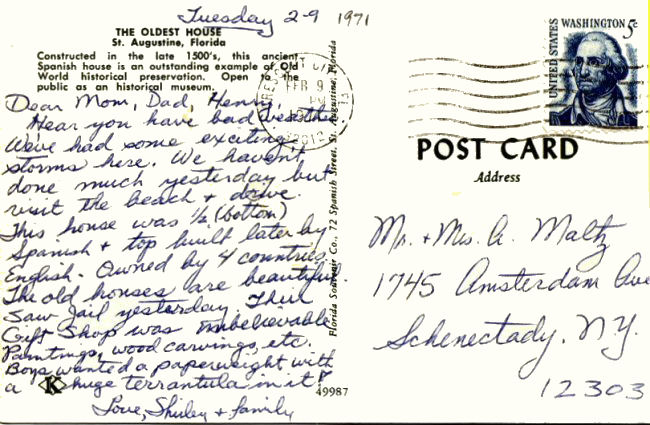 Tuesday 2-9 1971
THE OLDEST HOUSE
St. Augustine, Florida
Constructed in the late 1500's, this ancient
Spanish house is an outstanding example of Old
World historical preservation. Open to the
public as an historical museum.
Dear Mom, Dad, Henry,
Hear you have bad weather
We've had some exciting
storms here. We havent
done much yesterday but
visit the beach + drive.
This house was ½ (bottom)
Spanish + top built later by
English. Owned by 4 countries
The old houses are beautiful.
Saw Jail yesterday. Their
Gift Shop was unbelievable
Paintings, wood carvings, etc.
Boys wanted a paperweight with
a huge terrantula in it!
Love, Shirley + family
K
49987
Florida Souvenir Co., 72 Spanish Street, St. Augustine, Florida
FEB 9
UNITED STATES
WASHINGTON 5c
POST CARD
Address
Mr. + Mrs. A. Maltz
1745 Amsterdam Ave
Schenectady, N.Y.
12303